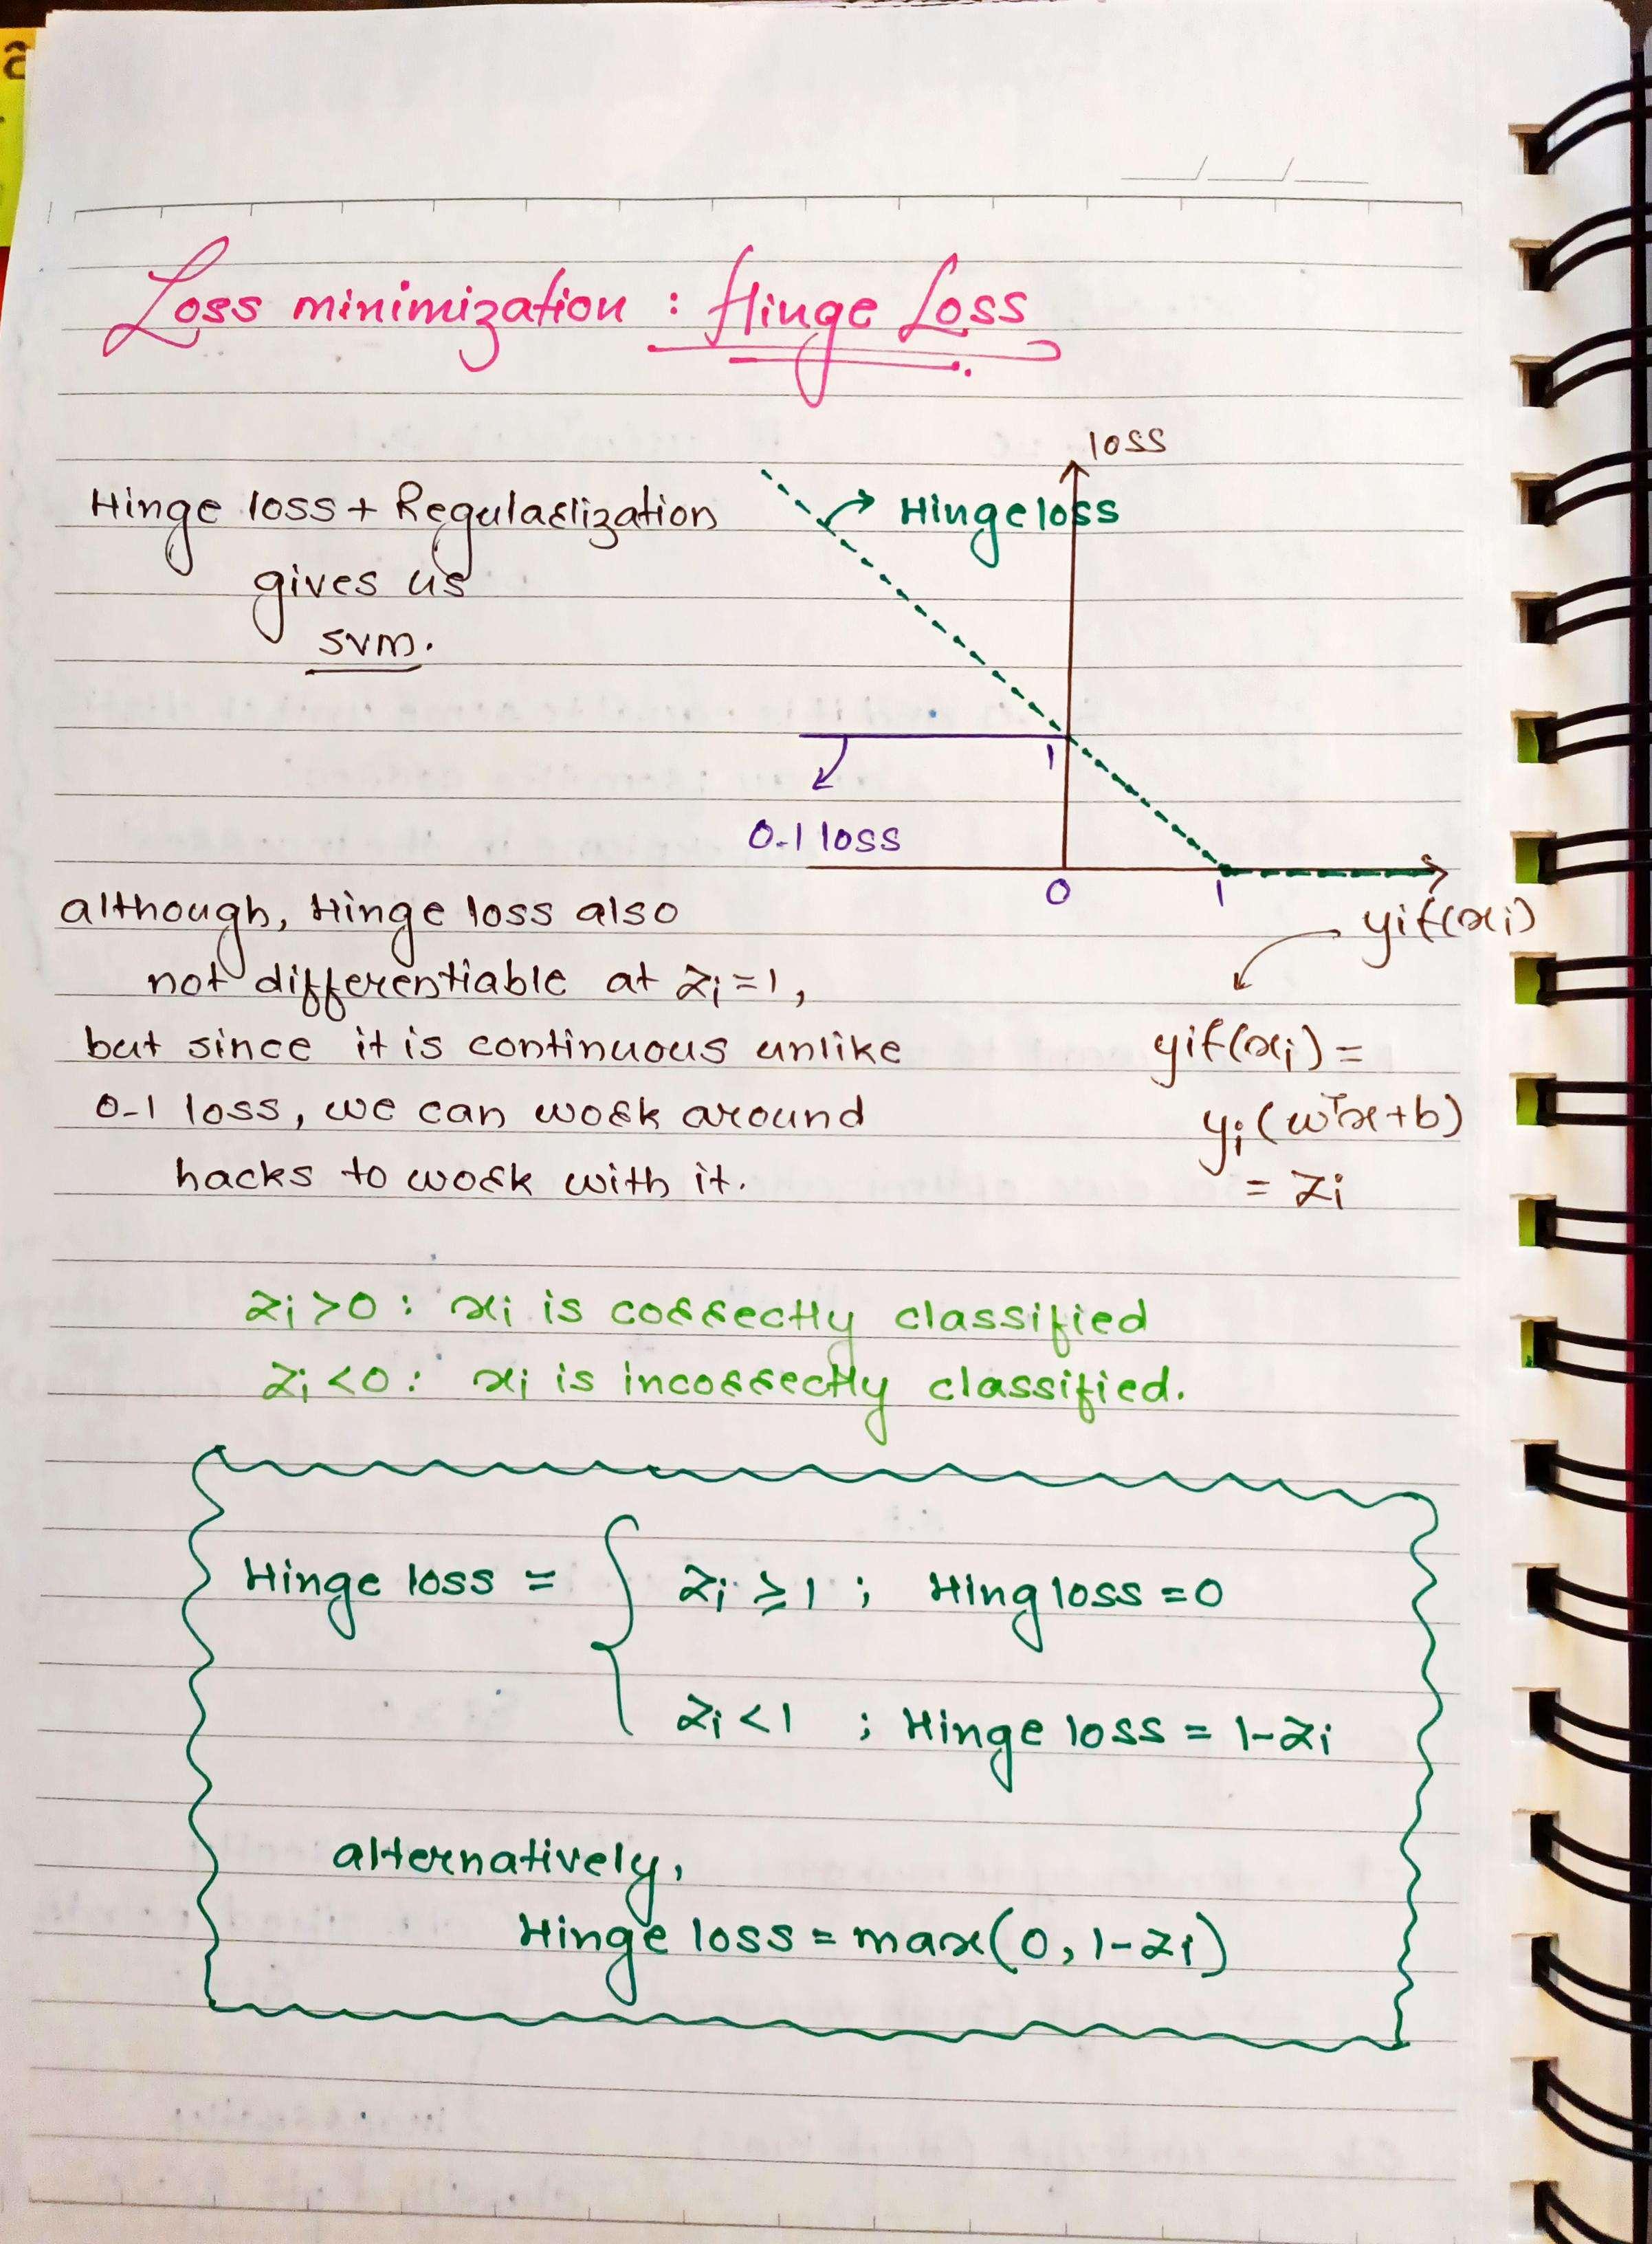 Loss minimization : Hinge Loss
loss
Hinge loss + Regularlization
gives us
svm.
Hinge loss
1
0-1 loss
0
1
yif(xi)
although, Hinge loss also
not differentiable at zi=1,
but since it is continuous unlike
0-1 loss, we can work around
hacks to work with it.
yif(xi) =
yi(wᵀx+b)
= zi
zi>0 : xi is correctly classified
zi<0 : xi is incorrectly classified.
Hinge loss = { zi ≥ 1 ; Hing loss = 0
zi < 1 ; Hinge loss = 1-zi
alternatively,
Hinge loss = max(0, 1-zi)